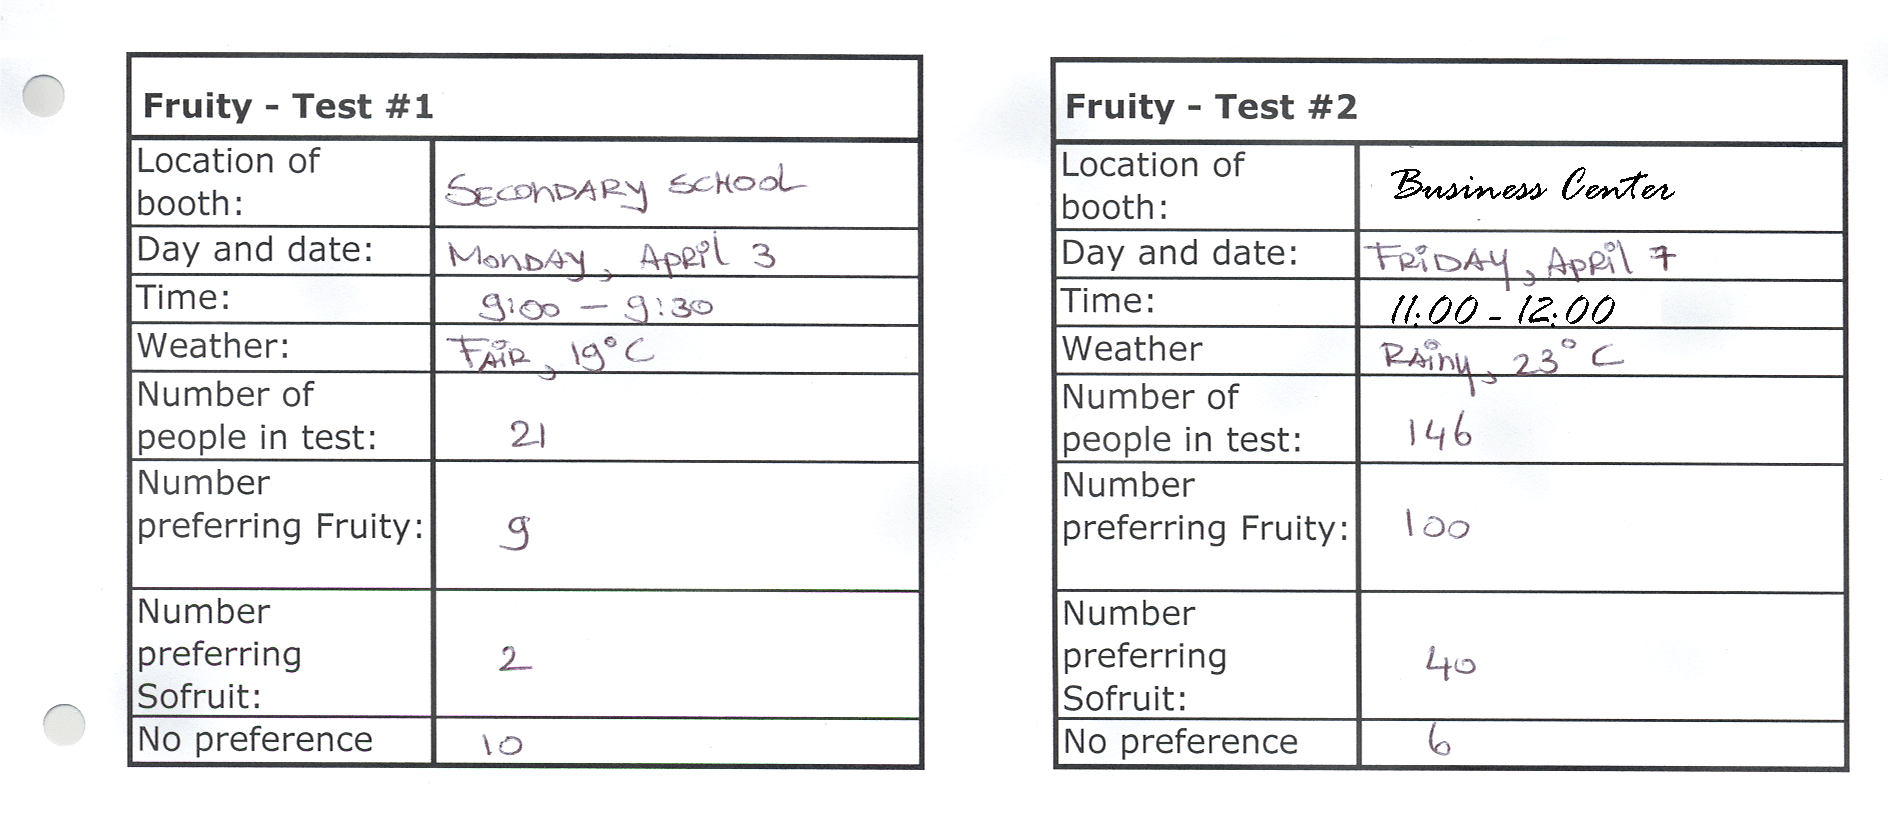 Fruity - Test #1
Location of
booth:
SECONDARY SCHOOL
Day and date:
MONDAY, APRil 3
Time:
9:00 - 9:30
Weather:
FAIR, 19°C
Number of
people in test:
21
Number
preferring Fruity:
9
Number
preferring
Sofruit:
2
No preference
10
Fruity - Test #2
Location of
booth:
Business Center
Day and date:
FRiDAY, APRil 7
Time:
11:00 - 12:00
Weather
RAiny, 23° C
Number of
people in test:
146
Number
preferring Fruity:
100
Number
preferring
Sofruit:
40
No preference
6